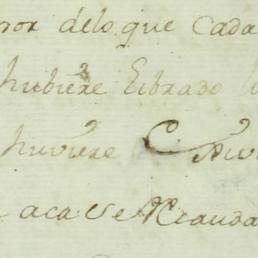 por delo que cada
hubiere librado
huviere
aca se Recauda